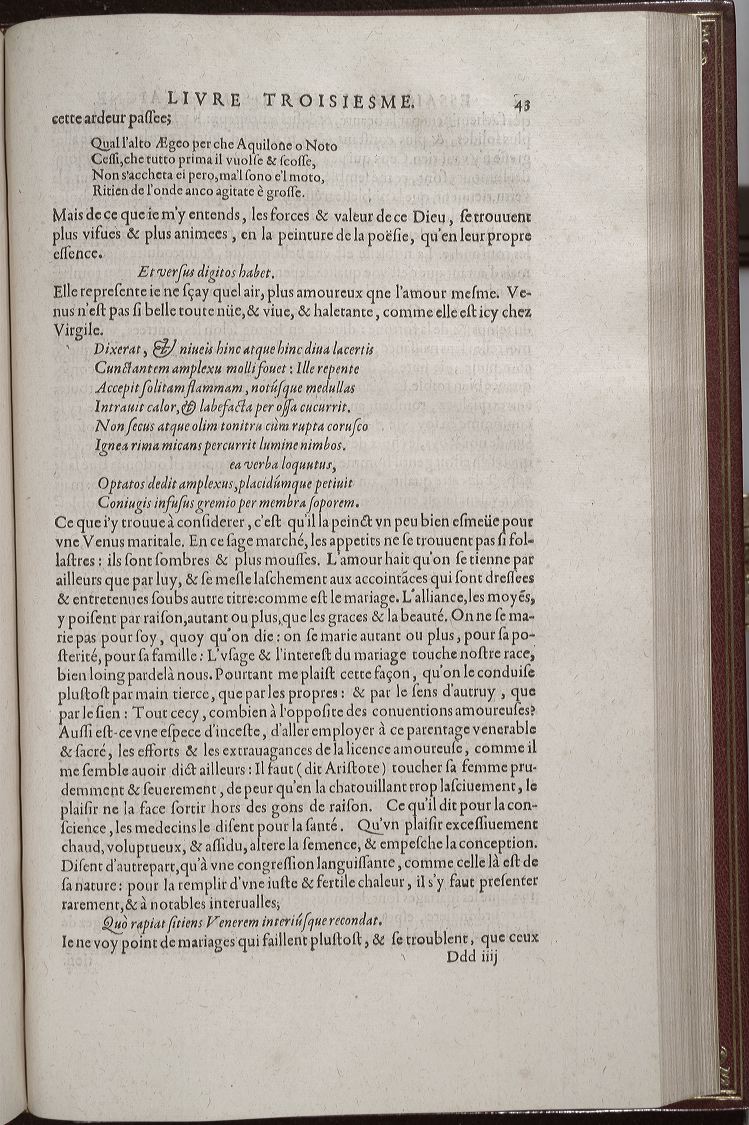 LIVRE TROISIESME. 43
cette ardeur paſſee;
Qual l'alto Ægeo per che Aquilone o Noto
Ceſſi, che tutto prima il vuolſe & ſcoſſe,
Non s'accheta ei pero, ma'l ſono e'l moto,
Ritien de l'onde anco agitate è groſſe.
Mais de ce que ie m'y entends, les forces & valeur de ce Dieu, ſe trouuent
plus vifues & plus animees, en la peinture de la poëſie, qu'en leur propre
eſſence.
Et verſus digitos habet.
Elle repreſente ie ne ſçay quel air, plus amoureux qne l'amour meſme. Ve-
nus n'eſt pas ſi belle toute nüe, & viue, & haletante, comme elle eſt icy chez
Virgile.
Dixerat, & niueis hinc atque hinc diua lacertis
Cunctantem amplexu molli fouet: Ille repente
Accepit ſolitam flammam, notúſque medullas
Intrauit calor, & labefacta per oſſa cucurrit.
Non ſecus atque olim tonitru cùm rupta coruſco
Ignea rima micans percurrit lumine nimbos.
ea verba loquutus,
Optatos dedit amplexus, placidúmque petiuit
Coniugis infuſus gremio per membra ſoporem.
Ce que i'y trouue à conſiderer, c'eſt qu'il la peinct vn peu bien eſmeüe pour
vne Venus maritale. En ce ſage marché, les appetits ne ſe trouuent pas ſi fol-
laſtres: ils ſont ſombres & plus mouſſes. L'amour hait qu'on ſe tienne par
ailleurs que par luy, & ſe meſle laſchement aux accointãces qui ſont dreſſées
& entretenues ſoubs autre titre: comme eſt le mariage. L'alliance, les moyẽs,
y poiſent par raiſon, autant ou plus, que les graces & la beauté. On ne ſe ma-
rie pas pour ſoy, quoy qu'on die: on ſe marie autant ou plus, pour ſa po-
ſterité, pour ſa famille: L'vſage & l'intereſt du mariage touche noſtre race,
bien loing pardelà nous. Pourtant me plaiſt cette façon, qu'on le conduiſe
pluſtoſt par main tierce, que par les propres: & par le ſens d'autruy, que
par le ſien: Tout cecy, combien à l'oppoſite des conuentions amoureuſes?
Auſſi eſt-ce vne eſpece d'inceſte, d'aller employer à ce parentage venerable
& ſacré, les efforts & les extrauagances de la licence amoureuſe, comme il
me ſemble auoir dict ailleurs: Il faut (dit Ariſtote) toucher ſa femme pru-
demment & ſeuerement, de peur qu'en la chatouillant trop laſciuement, le
plaiſir ne la face ſortir hors des gons de raiſon. Ce qu'il dit pour la con-
ſcience, les medecins le diſent pour la ſanté. Qu'vn plaiſir exceſſiuement
chaud, voluptueux, & aſſidu, altere la ſemence, & empeſche la conception.
Diſent d'autrepart, qu'à vne congreſſion languiſſante, comme celle là eſt de
ſa nature: pour la remplir d'vne iuſte & fertile chaleur, il s'y faut preſenter
rarement, & à notables interualles;
Quò rapiat ſitiens Venerem interiúſque recondat.
Ie ne voy point de mariages qui faillent pluſtoſt, & ſe troublent, que ceux
Ddd iiij